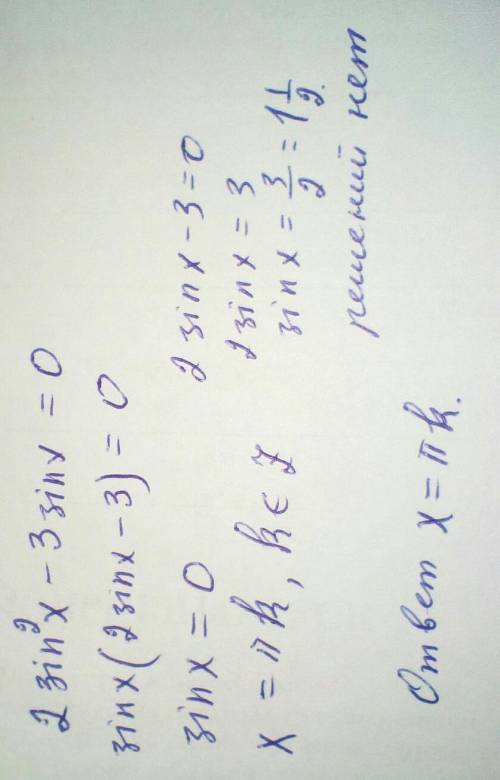 2 sin²x - 3 sin x = 0
sin x (2 sin x - 3) = 0
sin x = 0
x = πk, k ∈ Z
2 sin x - 3 = 0
2 sin x = 3
sin x = 3/2 = 1 1/2.
решений нет
Ответ x = πk.